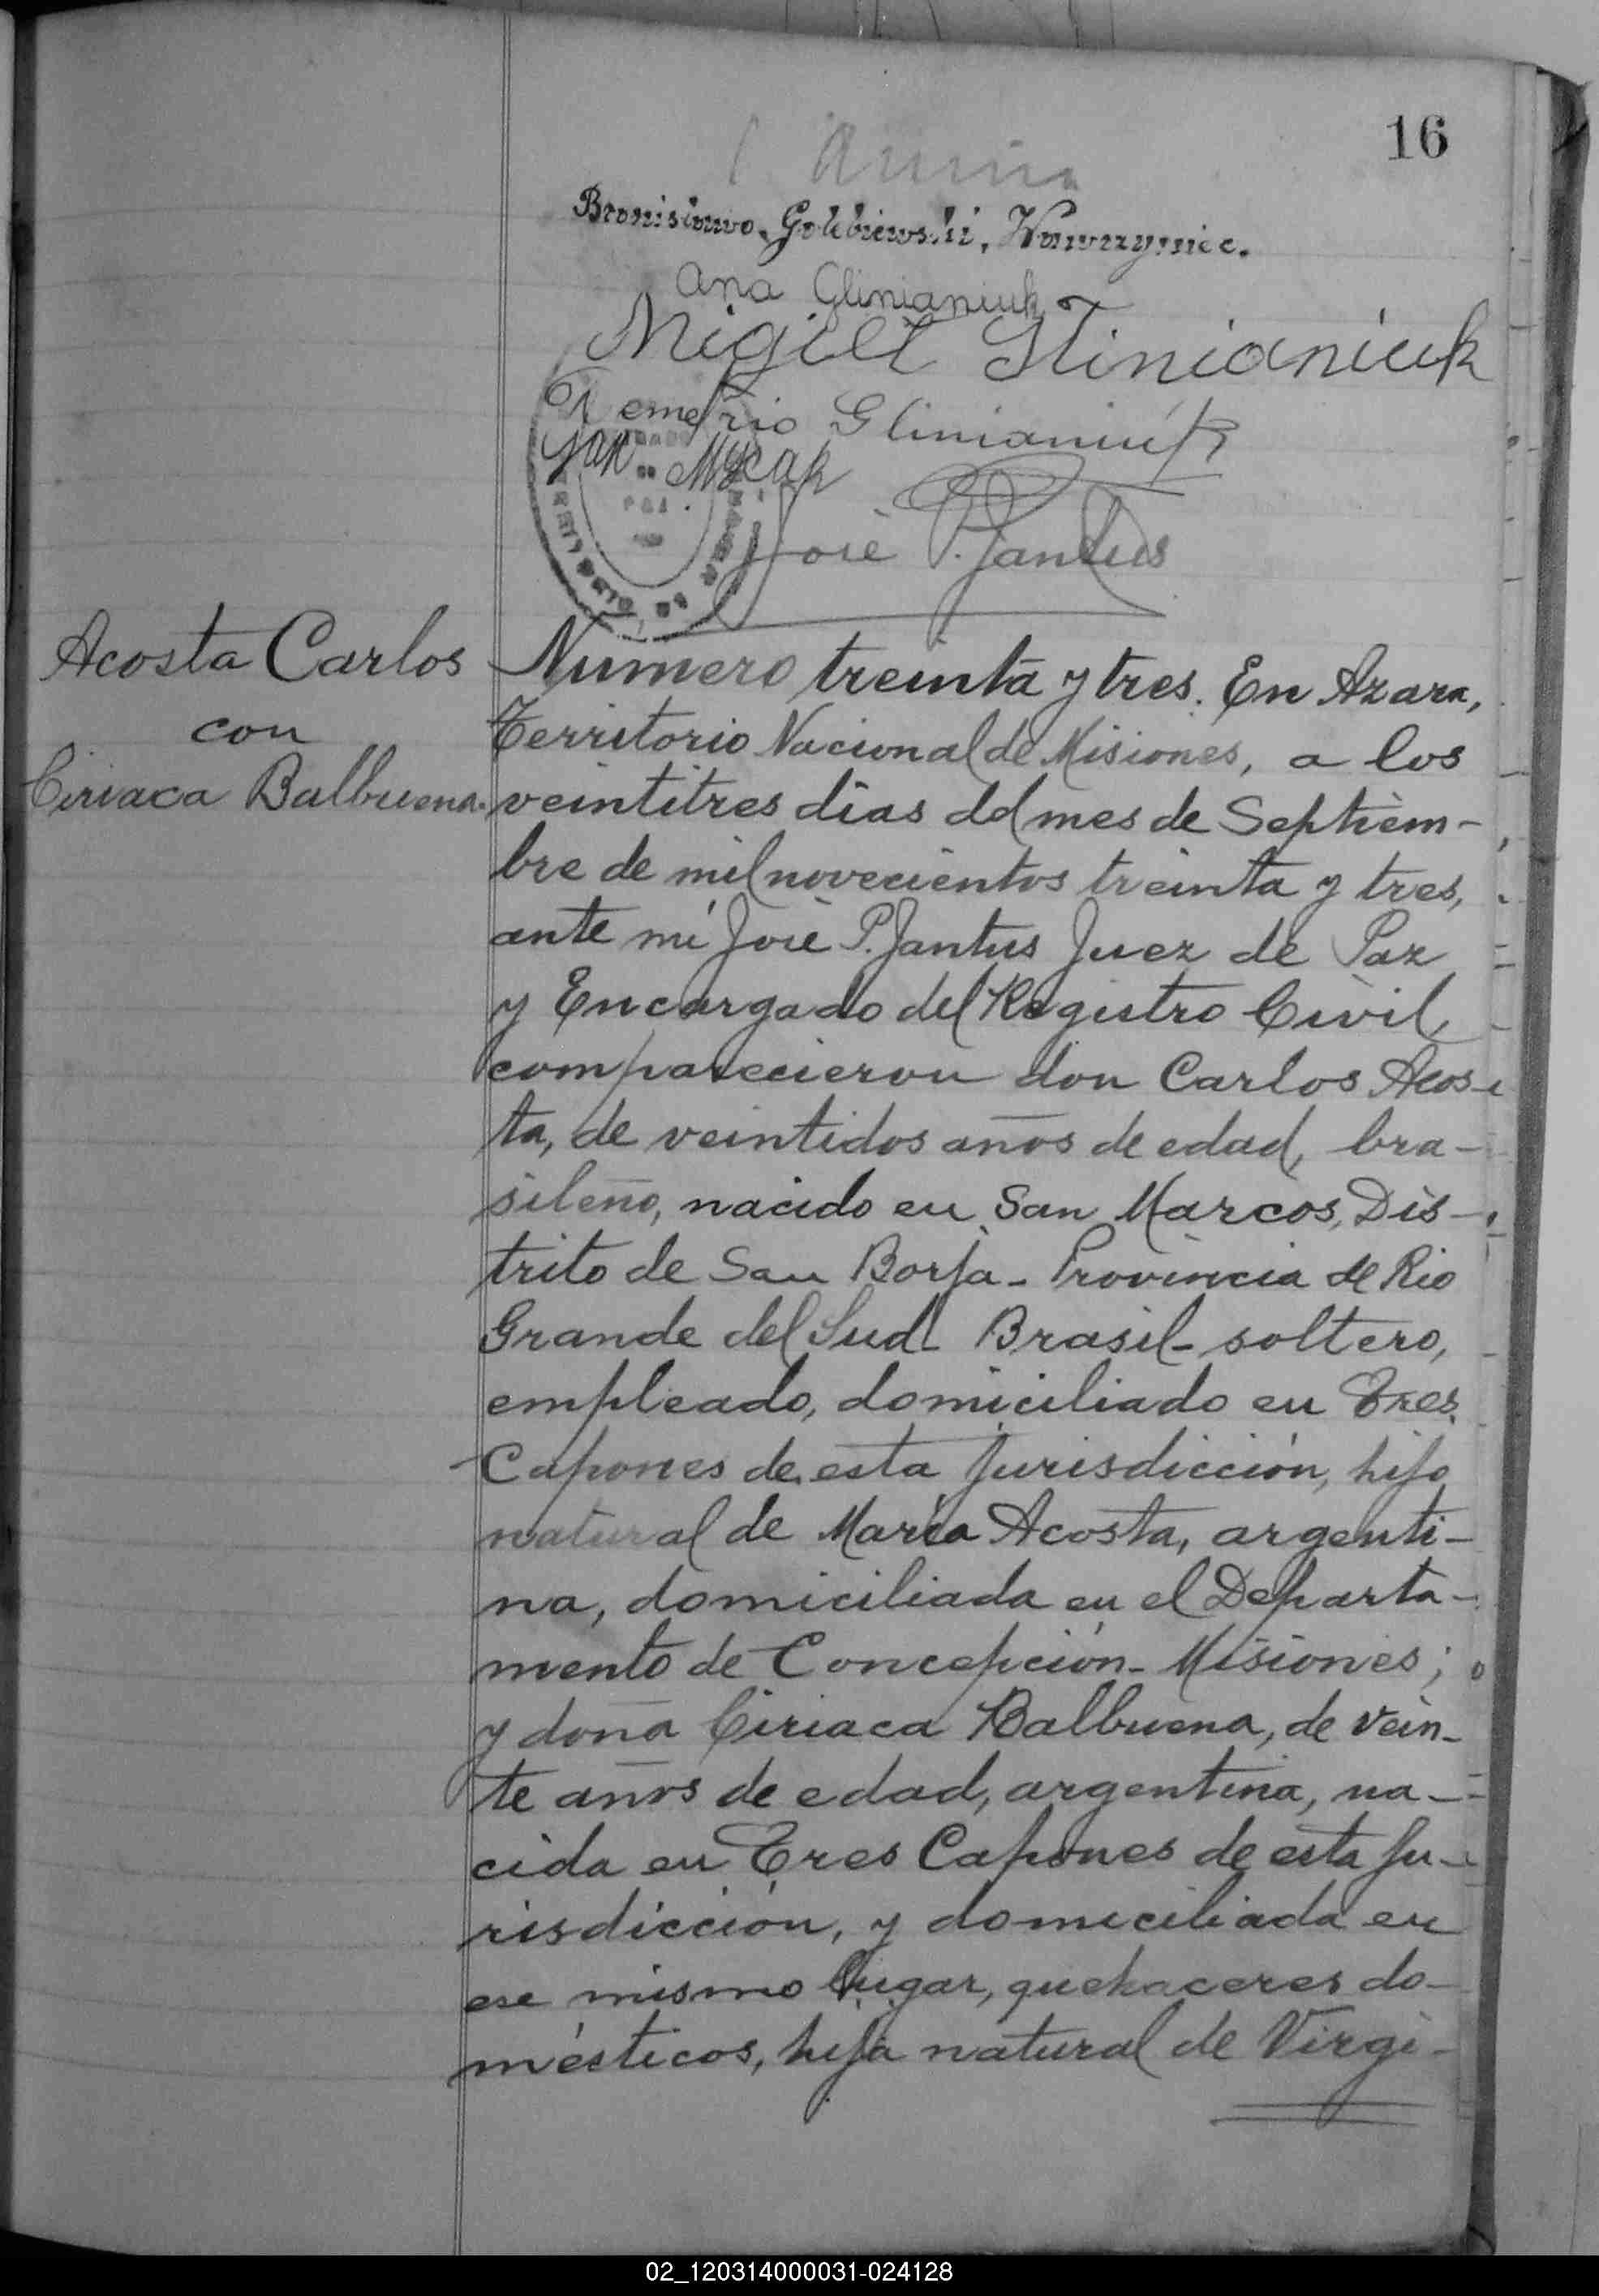 16
Bronislawo. Golebiewski, Wawrzyniec.
Ana Glinianiuk
Miguel Glinianiuk
Demetrio Glinianiuk
Jan Mycak
José P. Jantus
Acosta Carlos
con
Ciriaca Balbuena.
Numero treinta y tres. En Azara,
Territorio Nacional de Misiones, a los
veintitres dias del mes de Septiem-
bre de mil novecientos treinta y tres,
ante mi José P. Jantus Juez de Paz
y Encargado del Registro Civil,
comparecieron don Carlos Acos-
ta, de veintidos años de edad, bra-
sileño, nacido en San Marcos, Dis-
trito de San Borja - Provincia de Rio
Grande del Sud - Brasil - soltero,
empleado, domiciliado en Tres
Capones de esta Jurisdicción, hijo
natural de Maria Acosta, argenti-
na, domiciliada en el Departa-
mento de Concepción - Misiones;
y doña Ciriaca Balbuena, de vein-
te años de edad, argentina, na-
cida en Tres Capones de esta Ju-
risdicción, y domiciliada en
ese mismo lugar, quehaceres do-
mésticos, hija natural de Virgi-
02_120314000031-024128